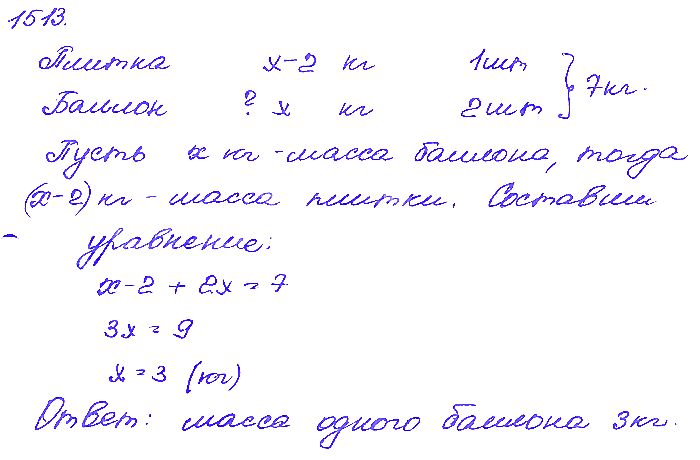 1513.
Плитка х-2 кг 1шт } 7кг.
Баллон ? х кг 2шт
Пусть х кг - масса баллона, тогда
(х-2) кг - масса плитки. Составим
уравнение:
х-2 + 2х = 7
3х = 9
х = 3 (кг)
Ответ: масса одного баллона 3кг.